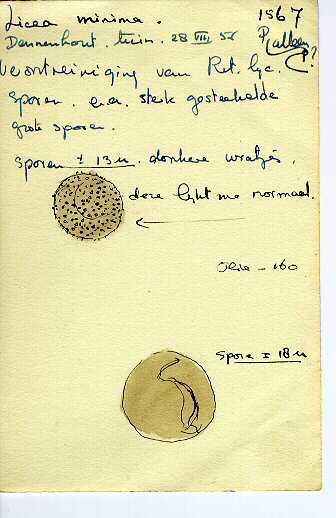 Licea minima. 1967
Dennenhout. tuin. 28 VIII 56 P(alleen P?
Verontreiniging van Ret. lyc.
Sporen. e.a. sterk gestekelde
grote sporen.
Sporen ± 13 u. donkere wratjes.
deze lijkt me normaal.
Olie - 160
Spore ± 18 u